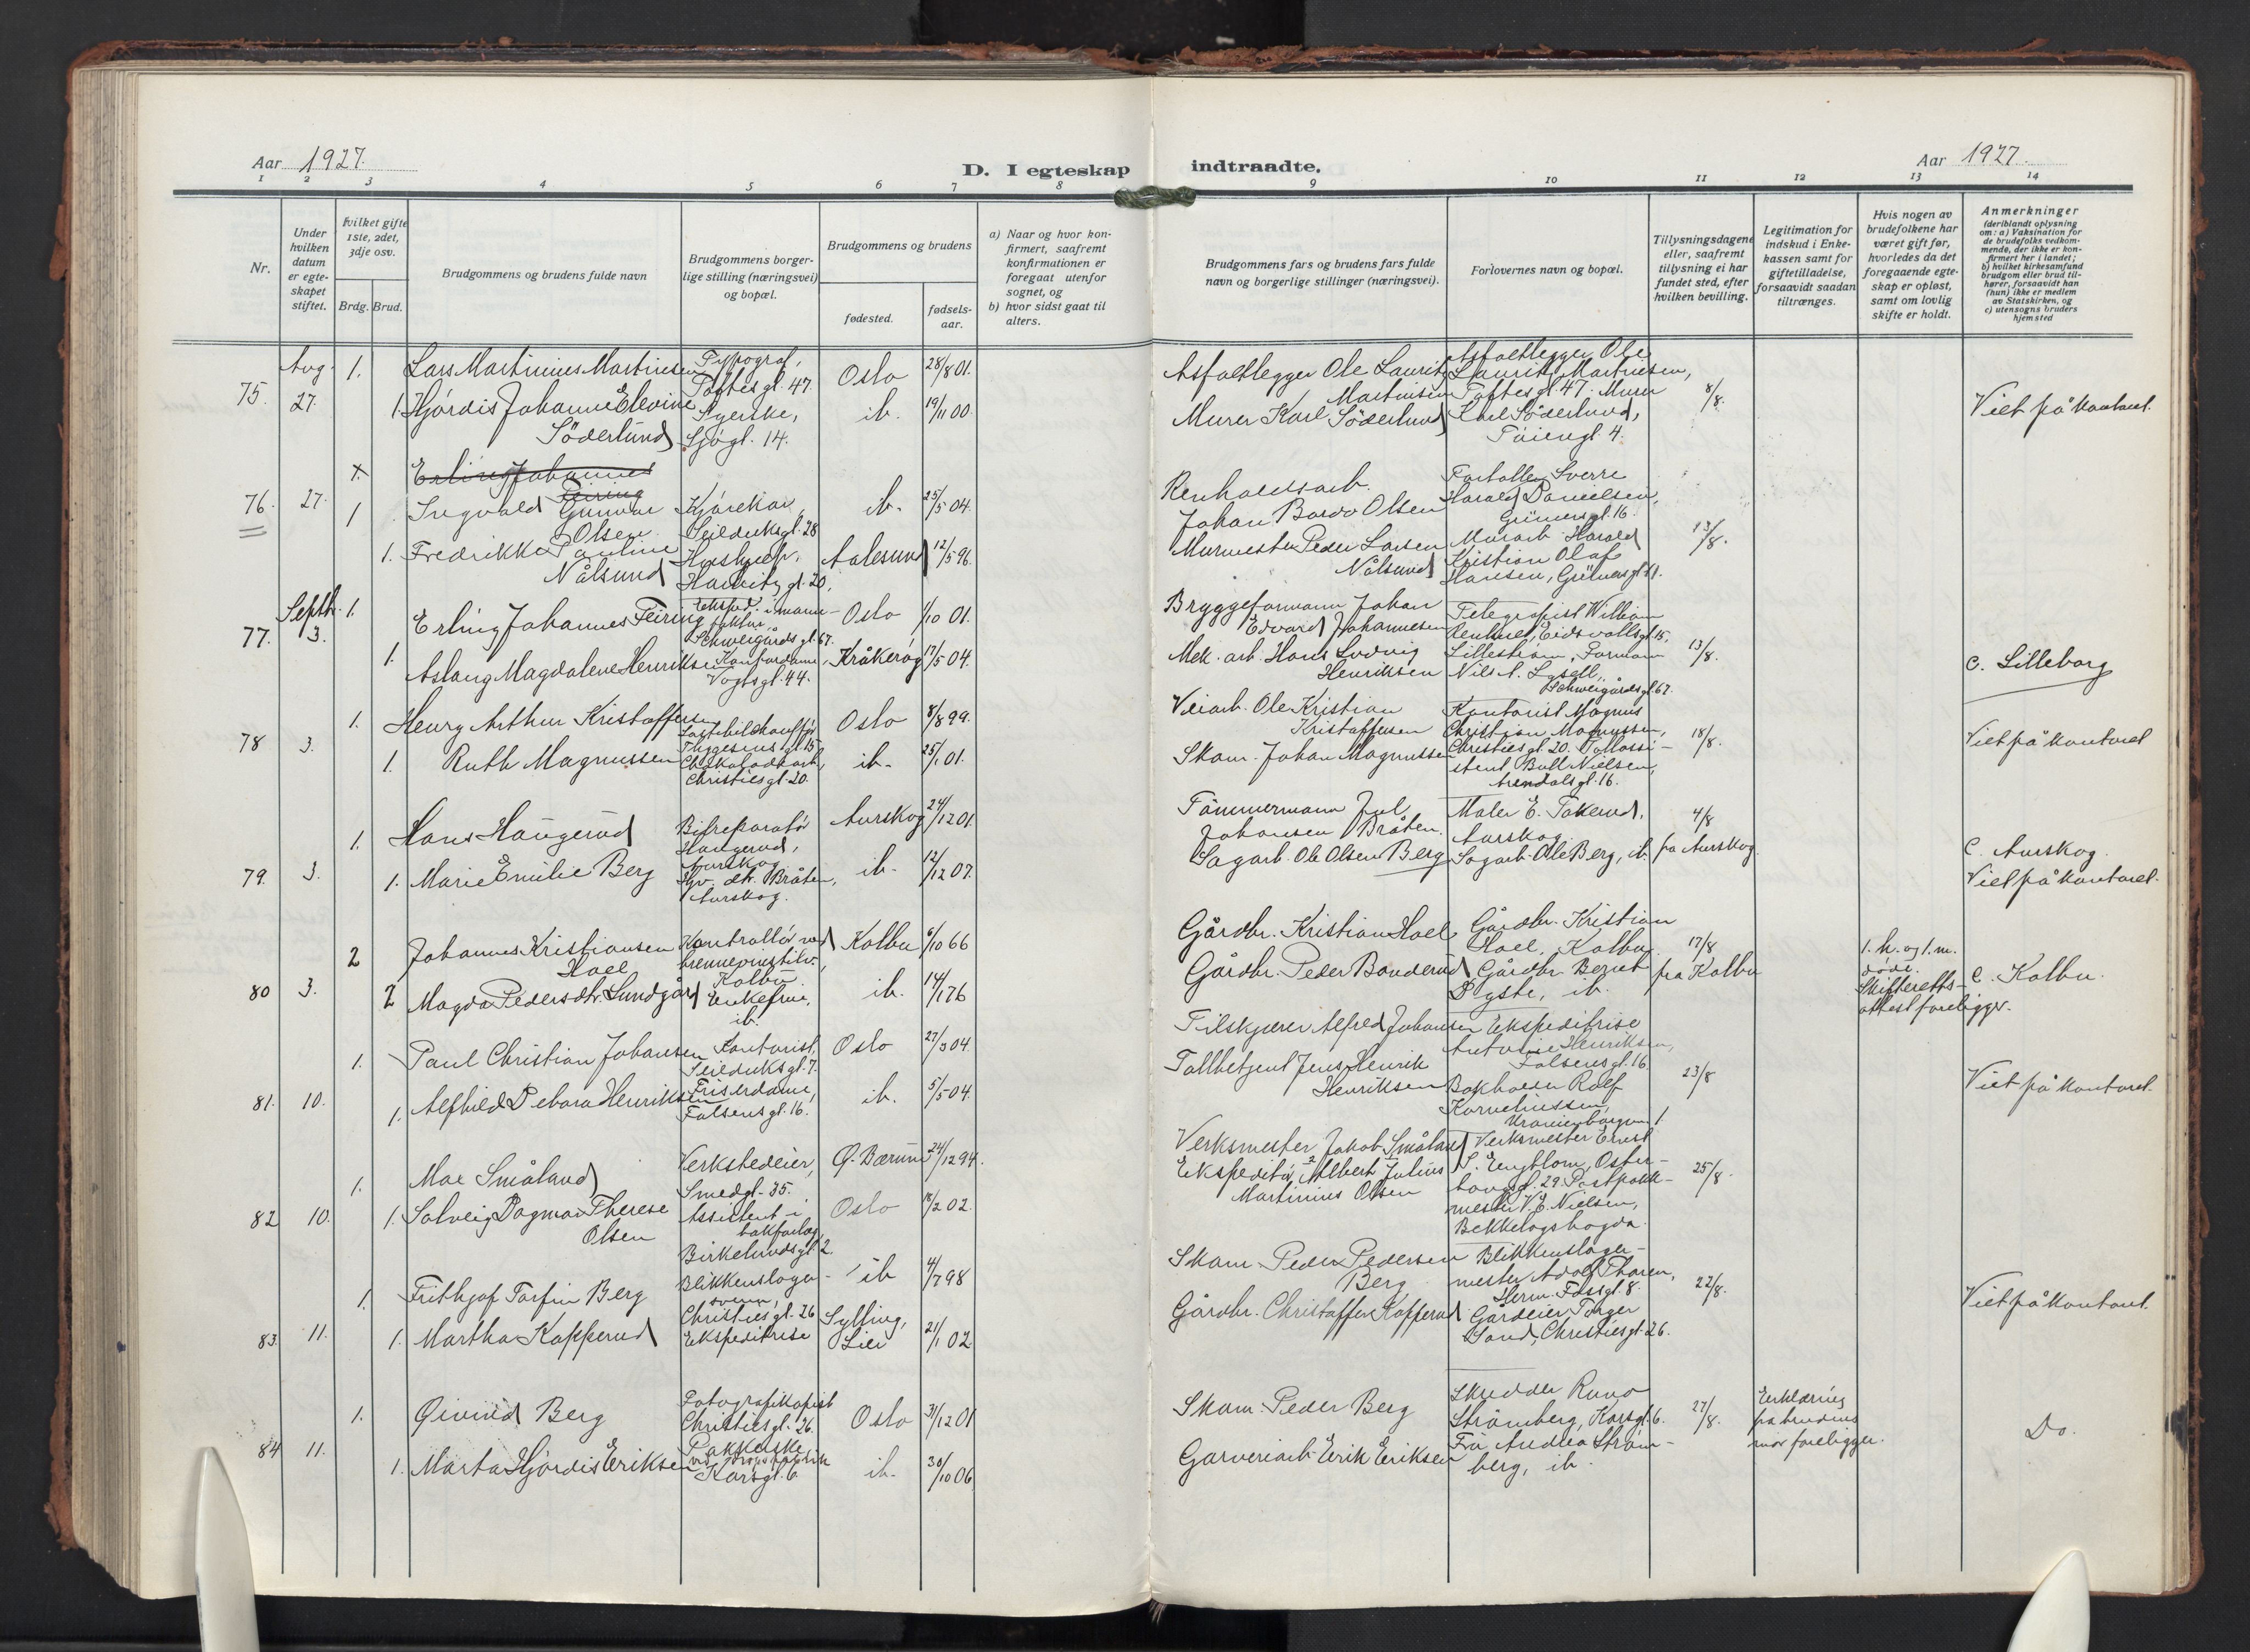 Aar 1927.
D. I egteskap indtraadte.
Aar 1927.
1 2 3 4 5 6 7 8 9 10 11 12 13 14
Nr.
Under hvilken datum er egteskapet stiftet.
Hvilket gifte 1ste, 2det, 3dje osv.
Brdg. Brud.
Brudgommens og brudens fulde navn
Brudgommens borgerlige stilling (næringsvei) og bopæl.
Brudgommens og brudens
fødested.
fødselsaar.
a) Naar og hvor konfirmert, saafremt konfirmationen er foregaat utenfor sognet, og
b) hvor sidst gaat til alters.
Brudgommens fars og brudens fars fulde navn og borgerlige stillinger (næringsvei).
Forlovernes navn og bopæl.
Tillysningsdagene eller, saafremt tillysning ei har fundet sted, efter hvilken bevilling.
Legitimation for indskud i Enkekassen samt for giftetilladelse, forsaavidt saadan tiltrænges.
Hvis nogen av brudefolkene har været gift før, hvorledes da det foregaaende egteskap er opløst, samt om lovlig skifte er holdt.
Anmerkninger (deriblandt oplysning om: a) Vaksination for de brudefolks vedkommende, der ikke er konfirmert her i landet; b) hvilket kirkesamfund brudgom eller brud tilhører, forsaavidt han (hun) ikke er medlem av Statskirken, og c) utensogns bruders hjemsted
75. Aug. 27.
1. Lars Martinius Martinsen Typograf, Toftesgt. 47. Oslo 28/8 01.
1. Hjørdis Johanne Elevine Söderlund Syerske, Sjøgt. 14. ib. 19/11 00.
Asfaltlegger Ole Lauritz Martinsen
Murer Karl Söderlund
Asfaltlegger Ole Lauritz Martinsen, Toftesgt. 47. Murer Karl Söderlund, Tøiengt. 4.
8/8.
Viet på kontoret.
76. 27.
1. Erling Johannes Feiring
1 Ingvald Gunvar Olsen Kjørekar Seilduksgt. 28 ib. 25/5 04.
1. Fredrikke Pauline Nålsund Hushjelp, gt. 20, Aalesund 12/5 96.
Renholdsarb. Johan Bardo Olsen
Murmester Peder Larsen Nålsund
Sverre Harald Danielsen, Grünersgt. 16.
Murarb. Harald Kristian Olaf Hansen, Grünersgt. 11.
13/8.
77. Septbr. 3.
1. Erling Johannes Feiring Eksped. i manufaktur, Schweigårdsgt. 67. Oslo 1/10 01.
1. Aslaug Magdalene Henriksen Kontordame, Vogtsgt. 44. Kråkerøy 17/5 04.
Bryggeformann Johan Edvard Johannesen
Mek. arb. Hans Ludvig Henriksen
Telegrafist William Eidsvollsgt. 15, Lillestrøm, Formann Nils A. Lysell, Schweigårdsgt. 67.
13/8.
c. Lilleborg
78 3.
1. Henry Arthur Kristoffersen Lastebilchauffør Thygesensgt. 15 Oslo 8/8 99.
1. Ruth Magnussen Chokoladearb., Christiesgt. 20. ib. 25/1 01.
Veiarb. Ole Kristian Kristoffersen
Skom. Johan Magnussen
Kontorist Magnus Christian Magnussen, Christiesgt. 20. Tollassistent Bull Nielsen, Arendalsgt. 16.
18/8.
Viet på kontoret
79. 3.
1. Hans Haugerud Bilreparatør Haugerud, Aurskog Aurskog 24/12 01.
1. Marie Emilie Berg Gbr. dtr. Bråten, Aurskog. ib. 12/12 07.
Tømmermann Jul Johansen Bråten.
Sagarb. Ole Olsen Berg
Maler E. Tokerud, Aurskog.
Sagarb. Ole Berg, ib.
4/8 fra Aurskog.
C. Aurskog.
Viet på kontoret.
80 3.
2 Johannes Kristiansen Hoel Kontrollør ved brennevinstilv. Kolbu. Kolbu 6/10 66
2 Magda Pedersdtr. Lundgård Enkefrue, ib. ib. 14/1 76
Gårdbr. Kristian Hoel
Gårdbr. Peder Bonderud
Gårdbr. Kristian Hoel, Kolbu.
Gårdbr. Bernt Dyste, ib.
17/8 fra Kolbu
1. h. og 1. m. døde. Skifteretts-attest foreligger.
C. Kolbu.
81. 10.
1. Paul Christian Johansen Kontorist, Seilduksgt. 7. Oslo 27/3 04.
1. Alfhild Debora Henriksen Friserdame, Falsensgt. 16. ib. 5/5 04.
Tilskjærer Alfred Johansen
Tollbetjent Jens Henrik Henriksen
Ekspeditrise Antonie Henriksen, Falsensgt. 16.
Bokholder Rolf Korneliussen,
23/8
Viet på kontoret.
82 10.
1. Max Småland Verkstedeier, Smedgt. 35. Ø. Bærum 24/12 94.
1. Solveig Dagmar Therese Olsen Assistent i bokforlag Birkelundsgt. 2. Oslo 18/2 02.
Verksmester Jakob Småland
Ekspeditør Albert Julius Martinius Olsen
Verksmester Ernst S. Engblom, Osterhausgt. 29. Postpakkmester V. E. Nielsen, Bekkelagshøgda.
25/8.
83. 11.
1. Frithjof Torfin Berg Blikkenslagersvenn, Christiesgt. 26 ib 4/7 98
1. Martha Kopperud Ekspeditrise Sylling, Lier 21/1 02
Skom. Peder Pedersen Berg
Gårdbr. Christoffer Kopperud
Blikkenslagermester Adolf Thoren, Herm. Fossgt. 8.
Gårdeier Torger Sand, Christiesgt. 26.
22/8.
Viet på kontoret.
84 11.
1. Øivind Berg Fotografikopist Christiesgt. 26. Oslo 31/12 01
1. Marta Hjørdis Eriksen Pakkerske Korsgt. 6 ib. 30/10 06
Skom. Peder Berg
Garveriarb. Erik Eriksen
Skredder Runo Strömberg, Korsgt. 6.
Fru Andrea Strömberg, ib.
27/8.
Erklæring fra brudens mor foreligger.
Do.